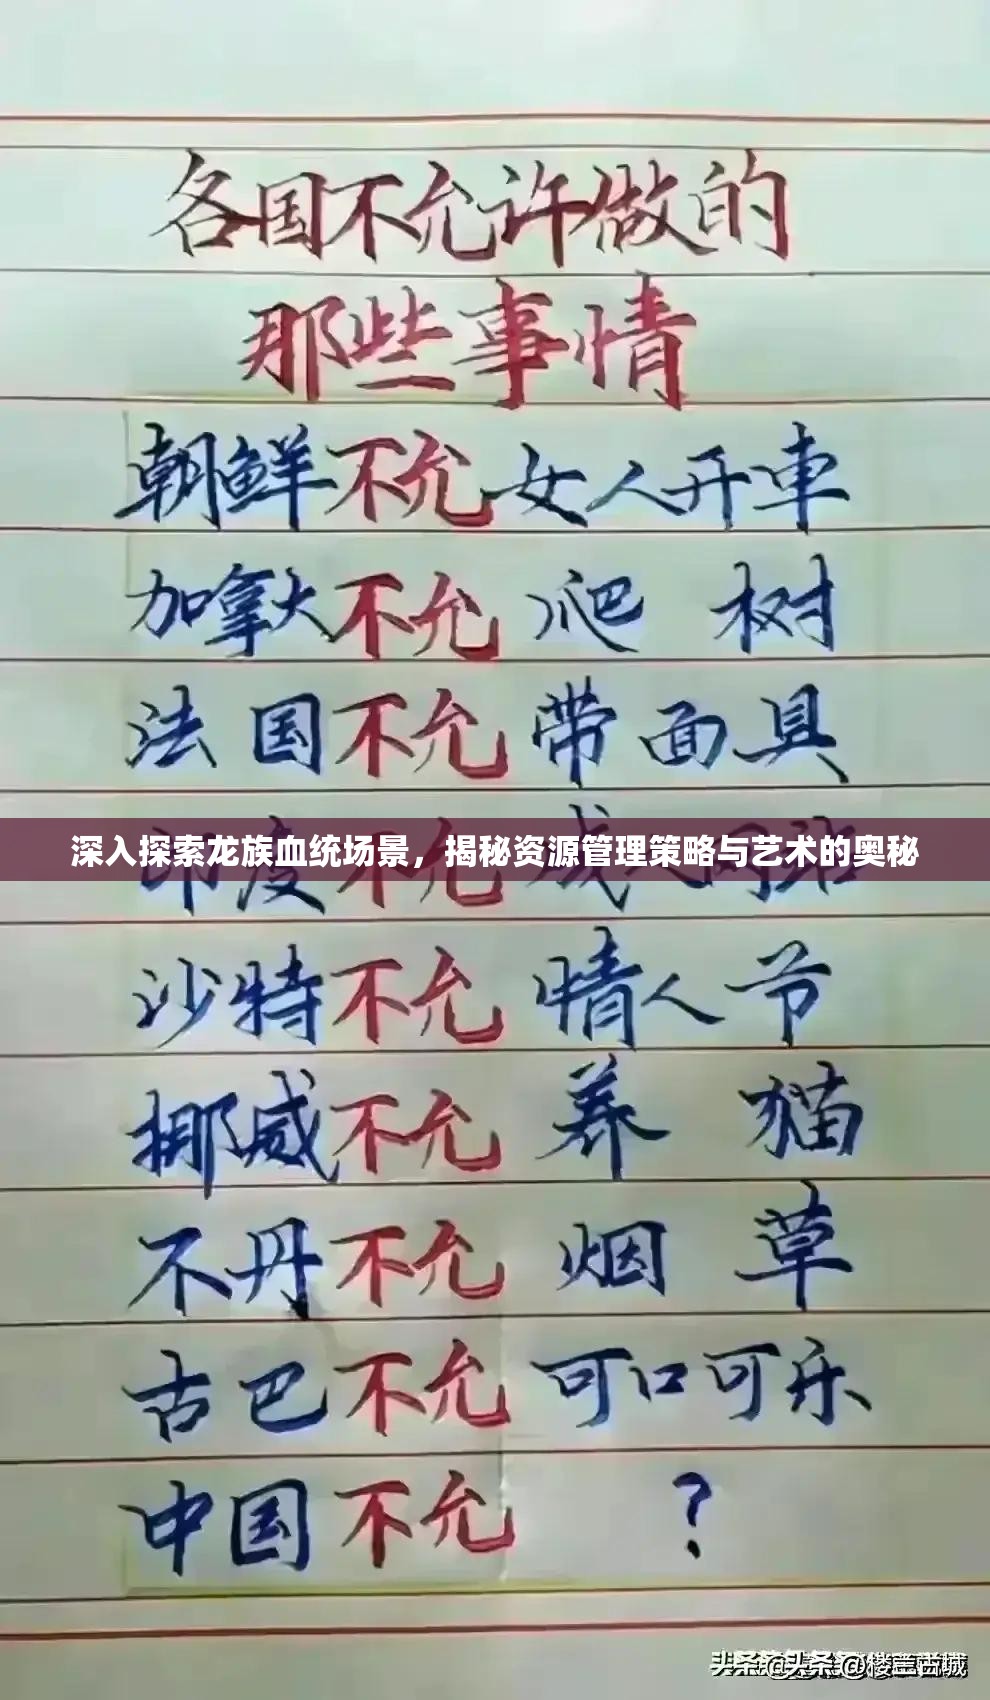 各国不允许做的
那些事情
朝鲜不允女人开車
加拿大不允爬树
法国不允带面具
深入探索龙族血统场景，揭秘资源管理策略与艺术的奥秘
印度不允
沙特不允情人节
挪威不允养猫
不丹不允烟草
古巴不允可口可乐
中国不允？
头条@头条@楼兰尚城